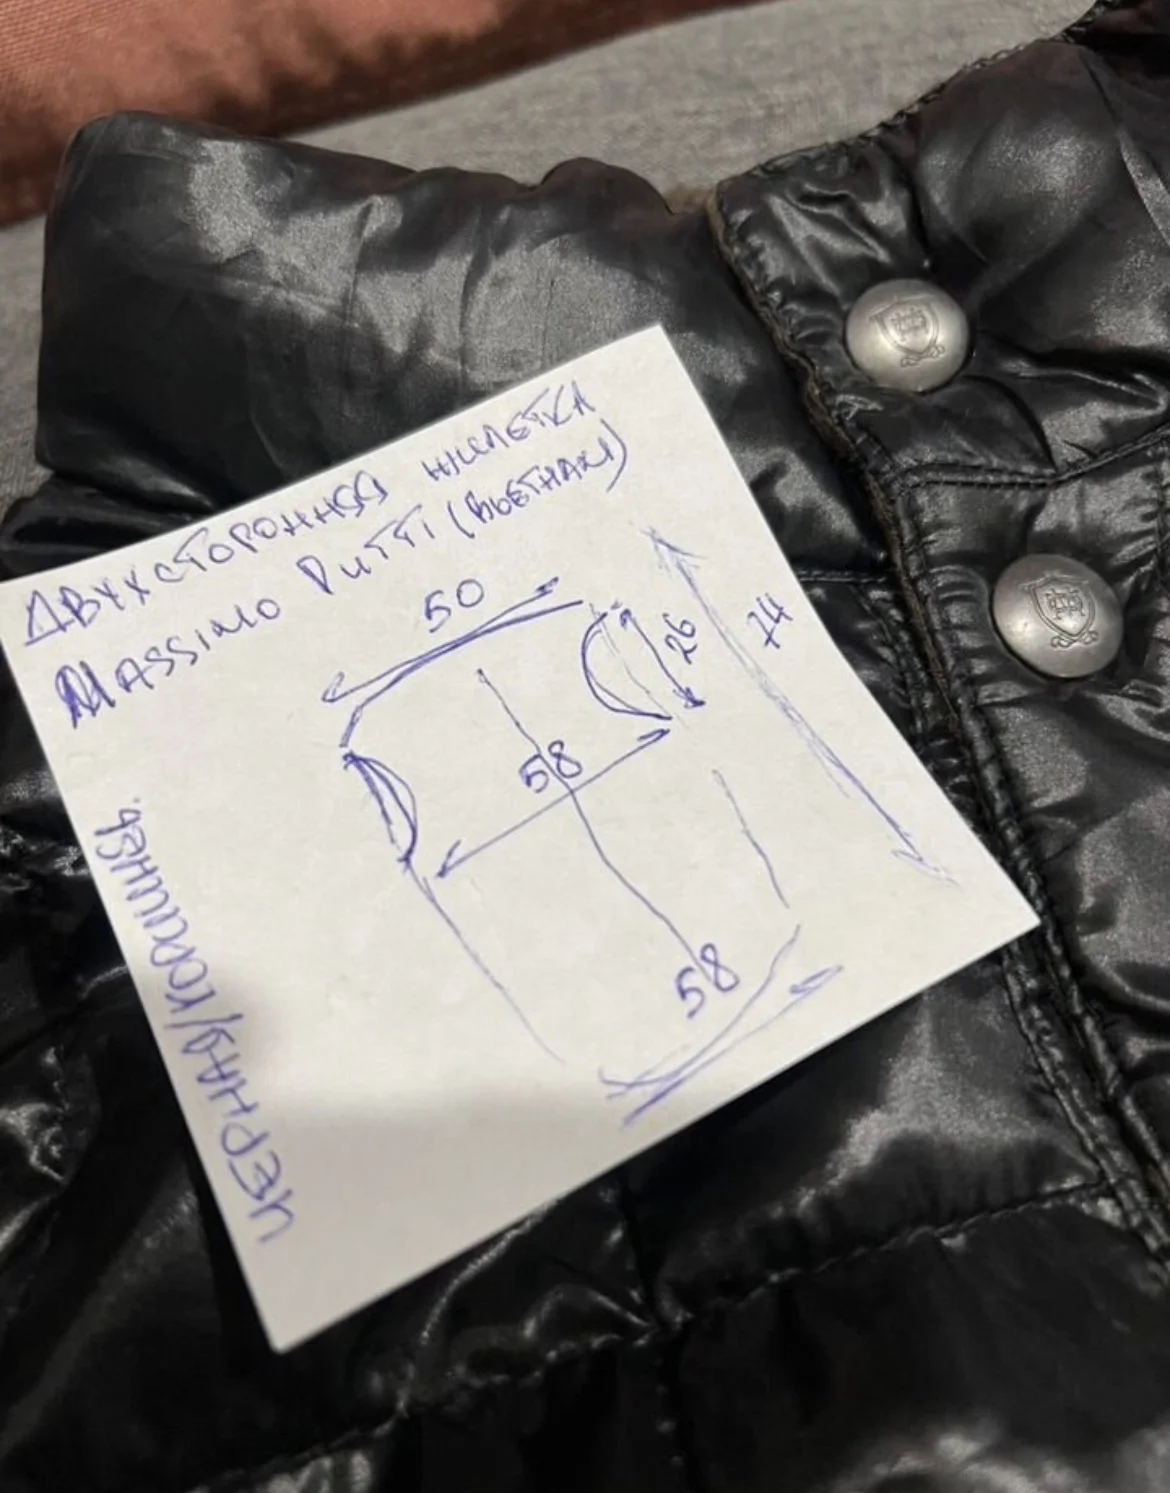 ДВУХСТОРОННЯЯ ЖИЛЕТКА
MASSIMO DUTTI (ВЬЕТНАМ)
50
26
74
58
58
ЧЕРНАЯ/КОРИЧНЕВ.